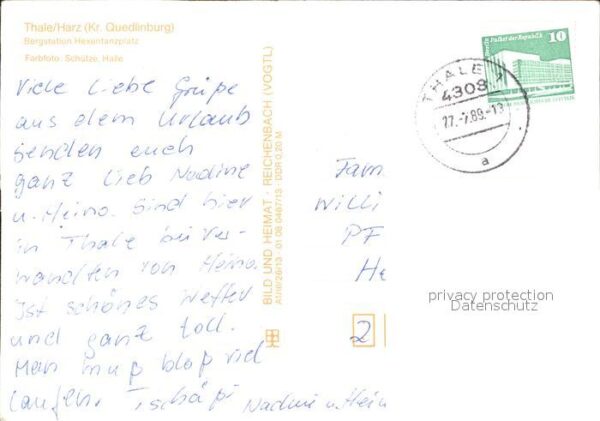 Thale/Harz (Kr. Quedlinburg)
Bergstation Hexentanzplatz
Farbfoto: Schütze, Halle
Viele liebe Grüße
aus dem Urlaub
senden euch
ganz lieb Nadine
u. Heino. Sind hier
in Thale bei Ver-
wandten von Heino.
Ist schönes Wetter
und ganz toll.
Man muß bloß viel
laufen. Tschüß
Nadine u. Hein
BILD UND HEIMAT · REICHENBACH (VOGTL)
01 08 0467/13 · DDR 0,20 M
Palast der Republik
Berlin
10
THALE 1
4308
27.-7.89.-13
a
Fam
Willi
PF
He
2
privacy protection
Datenschutz